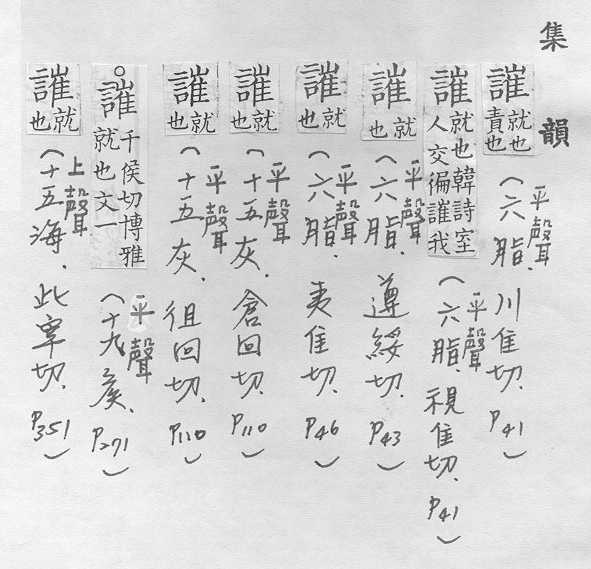 集韻
誰就也責也（平聲六脂．川隹切．P41）
誰就也韓詩室人交徧誰我（平聲六脂．視隹切．P41）
誰就也（平聲六脂．遵綏切．P43）
誰就也（平聲六脂．夷隹切．P46）
誰就也（平聲十五灰．倉回切．P110）
誰就也（平聲十五灰．徂回切．P110）
○誰千侯切博雅就也文一（平聲十九侯．P271）
誰就也（上聲十五海．此宰切．P351）